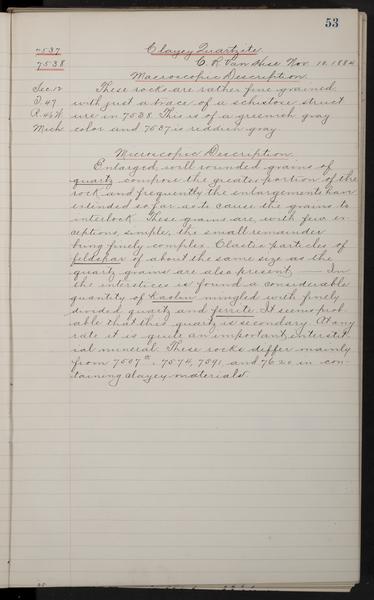 53
7537 Clayey Quartzite.
7538 C. R. Van Hise Nov. 10, 1884
Macroscopic Description.
Sec. 12 These rocks are rather fine grained
T. 47 with just a trace of a schistose struct
R. 46 W. ure in 7538. This is of a greenish gray
Mich. color and 7537 is reddish gray.
Microscopic Description.
Enlarged, well rounded grains of
quartz compose the greater portion of the
rock and frequently the enlargements have
extended so far as to cause the grains to
interlock. These grains are, with few ex
ceptions, simple, the small remainder
being finely complex. Clastic particles of
feldspar of about the same size as the
quartz grains are also present. — In
the interstices is found a considerable
quantity of kaolin mingled with finely
divided quartz and ferrite. It seems prob
able that this quartz is secondary. At any
rate it is quite an important interstit
ial mineral. These rocks differ mainly
from 7507, 7574, 7591 and 7620 in con-
taining clayey materials.